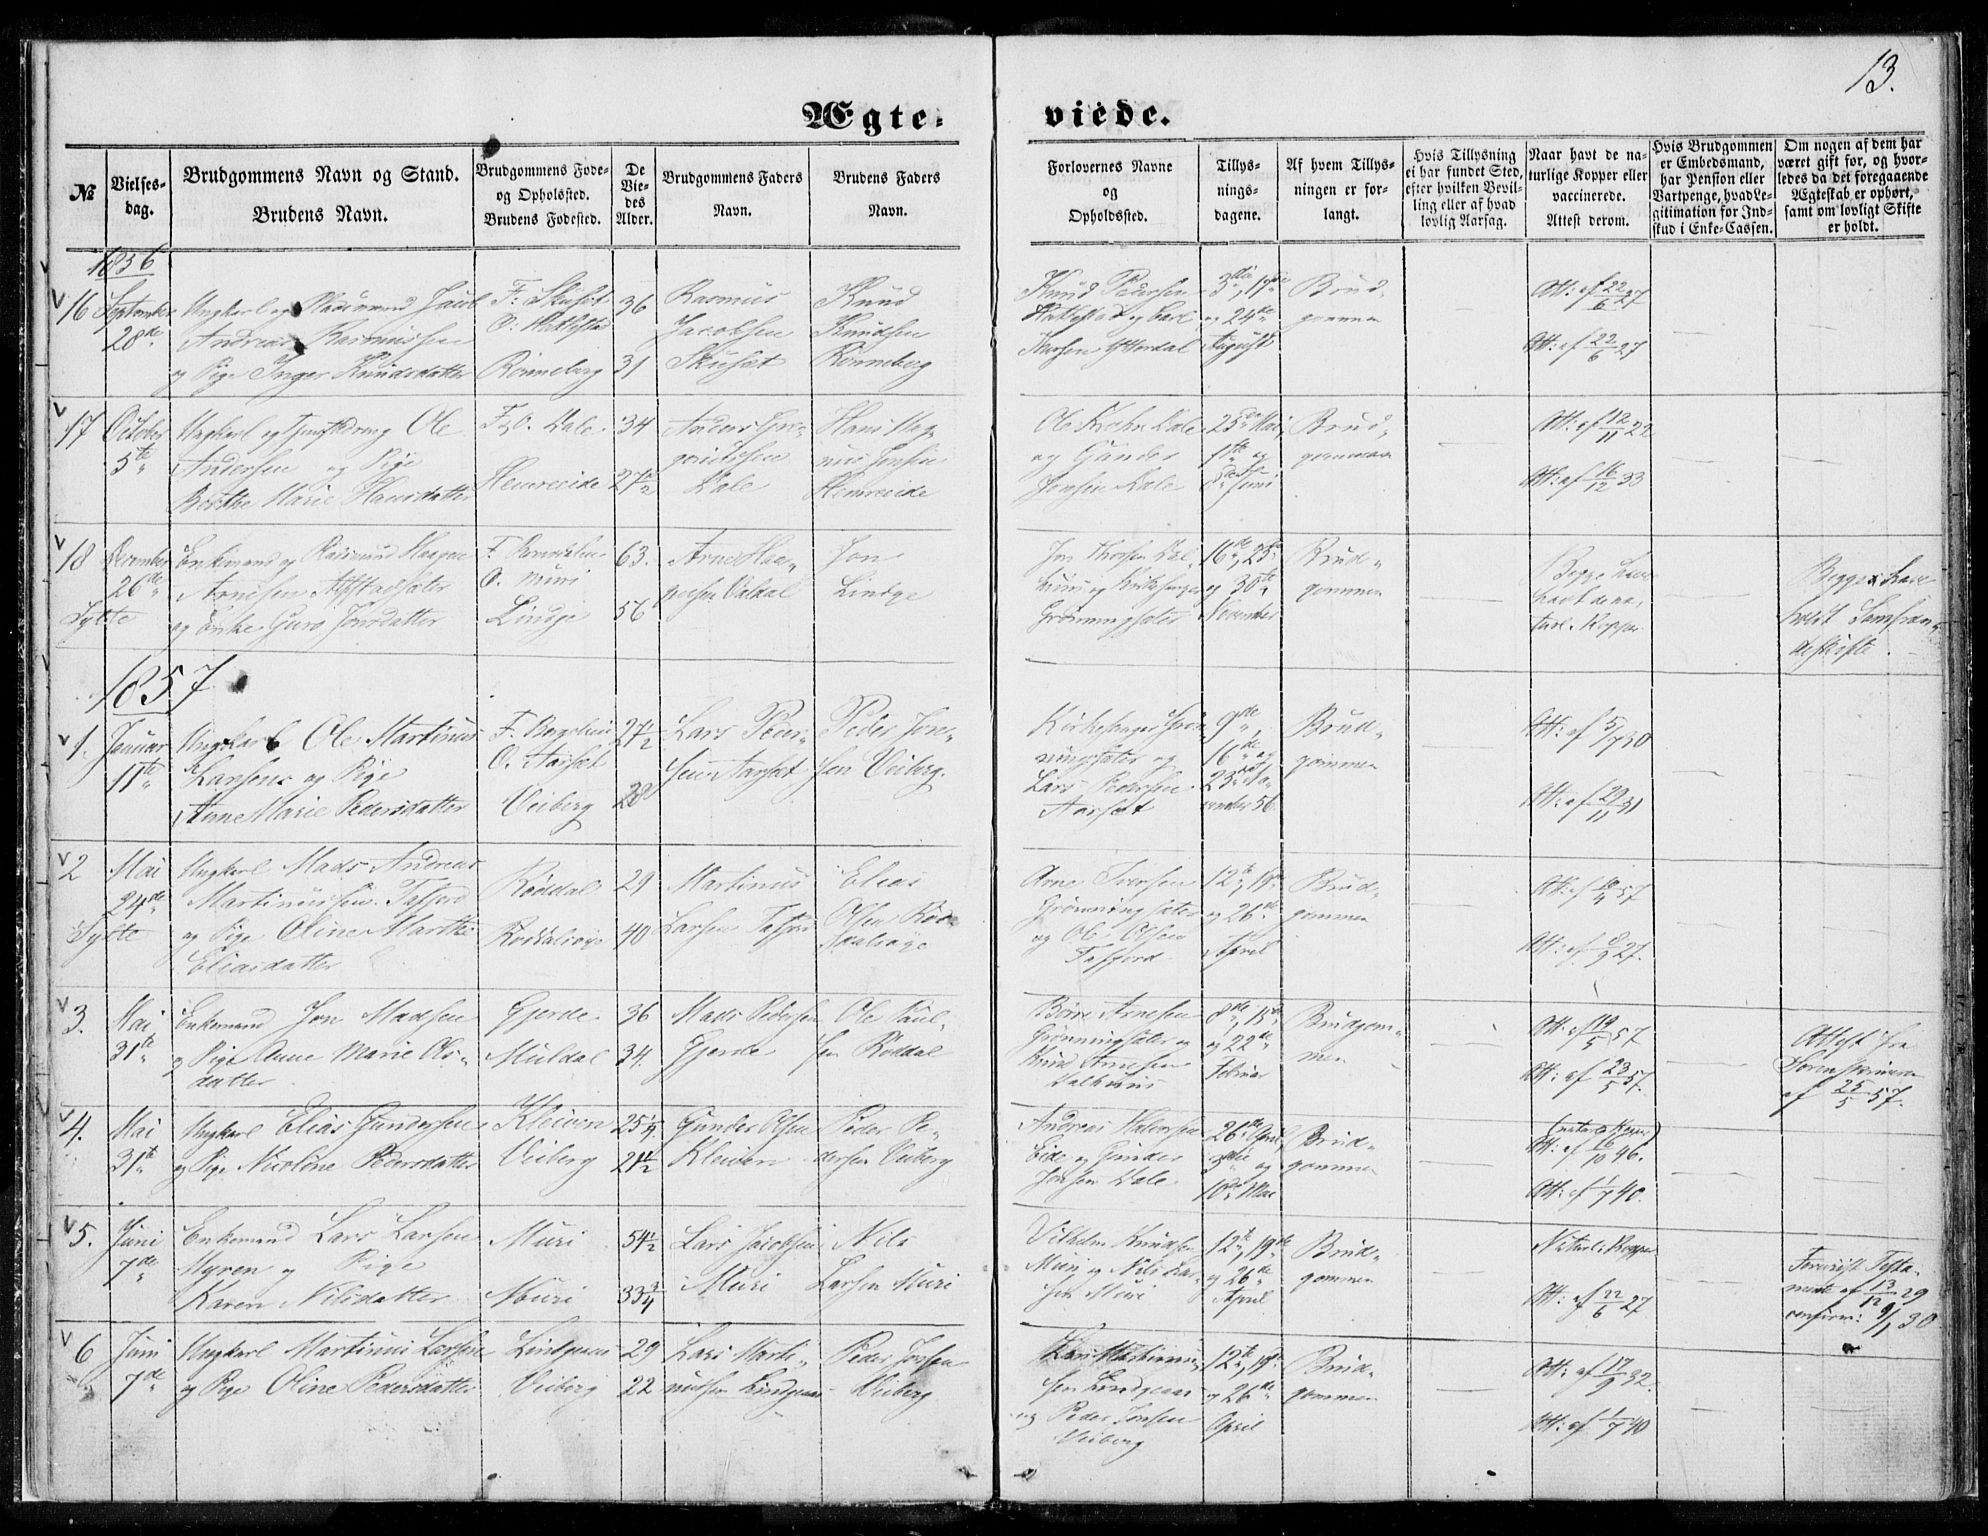 13.
Ægte- viede.
№
Vielses-
dag.
Brudgommens Navn og Stand.
Brudens Navn.
Brudgommens Føde-
og Opholdsted.
Brudens Fødested.
De
Vie-
des
Alder.
Brudgommens Faders
Navn.
Brudens Faders
Navn.
Forlovernes Navne
og
Opholdssted.
Tillys-
nings-
dagene.
Af hvem Tillys-
ningen er for-
langt.
Hvis Tillysning
ei har fundet Sted,
efter hvilken Bevil-
ling eller af hvad
lovlig Aarsag.
Naar havt de na-
turlige Kopper eller
vaccinerede.
Attest derom.
Hvis Brudgommen
er Embedsmand,
har Pension eller
Vartpenge, hvad Le-
gitimation for Ind-
skud i Enke-Cassen.
Om nogen af dem har
været gift før, og hvor-
ledes da det foregaaende
Ægteskab er ophørt,
samt om lovligt Skifte
er holdt.
1856
16 September
28de
Ungkarl og Jacob
Andreas Rasmussen
og Pige Inger Knudsdatter
F: Skuset
O:
Rønneberg
36
31
Rasmus
Jacobsen
Skuset
Knud
Knudsen
Rønneberg
Knud Pedersen
og
3die, 17de
og 24de
August
Brud-
gommen
Att: af 22/6 27
Att: af 22/6 27
17 October
5te
Ungkarl og Ole
Andersen og Pige
Berthe Marie Hansdatter
F. & O. Dale
Hemreeide
34
27 1/2
Anders Gre-
Dale
Hans Mag-
nus Jensen
Hemreeide
Ole Dale
og Gunder
Jonsen Dale
25de Mai,
1ste og
8de Juni
Brud-
gommen
Att: af 12/11 22
Att: af 16/12 33
18 December
26de
Sylte
Enkemand og Haagen
Arnesen
og Enke Guro Jonsdatter
F.
O. Muri
Lindge
63.
56
Arne Haa-
gensen Valdal
Jon
Lindge
og Kirkesanger
Grønningsæter
16de, 23de
og 30te
November
Brud-
gommen
Begge have
havt de na-
turl. Kopper
Begge have
holdt Samfræn-
deskifte.
1857
1. Januar
11te
Ungkarl Ole Martinus
Larsen og Pige
Anne Marie Pedersdatter
F.
O. Aarset
Veiberg
27 1/2
28
Lars Peder-
sen Aarset
Peder Jon-
sen Veiberg.
Kirkesanger Grøn-
ningsæter og
Lars Pedersen
Aarset
9de,
16de og
23de No-
vember 56
Brud-
gommen
Att: af 5/7 30
Att: af 29/11 31
2 Mai
24de
Sylte
Ungkarl Mads Andreas
Martinussen Tafjord
og Pige Oline Marthe
Eliasdatter
Røddal
Røddalsøye
29
40
Martinus
Larsen Tafjord
Elias
Olsen Rød-
dalsøye
Arne Iversen
Grønningsæter
og Ole Olsen
Tafjord
12te, 19de
og 26de
April
Brud-
gommen
3. Mai
31te
Enkemand Jon Madsen
og Pige Anne Marie Ols-
datter
Gjerde
Muldal
36
34.
Mads Pedersen
Gjerde
Ole Paul-
sen Røddal
Børre Arnesen
Grønningsæter og
Knud Arnesen
8de, 15de
og 22de
Februar
Brudgom-
men
Att: af 19/5 57
Att: af 23/5 57.
Attest fra
Sorenskriveren
af 25/5 57.
4. Mai
31te
Ungkarl Elias Gundersen
og Pige Nicoline Pedersdatter
Kleiven
Veiberg
25 1/4
21 1/2
Gunder Olsen
Kleiven
Peder Pe-
dersen Veiberg
Andreas Halvorsen
Eide og Gunder
Jonsen Dale
26de April,
3die og
10de Mai
Brud-
gommen
Att: af 6/10 46.
Att: af 1/7 40.
5. Juni
7de
Enkemand Lars Larsen
Myren og Pige
Karen Nilsdatter
Muri
Muri
54 1/2
33 3/4
Lars Jacobsen
Muri
Nils
Larsen Muri
Vilhelm Knudsen
Muri og Nils Lar-
sen Muri
12te, 19de
og 26de
April
Brud-
gommen
Naturl: Kopper
Att: af 22/6 27
Forevist Testa-
ment af 13/12 29
confirm: 9/1 30
6 Juni
7de
Ungkarl Martinus Larsen
og Pige Oline Pedersdatter
Lindgeaas
Veiberg
29
22
Lars Marti-
nussen Lindgeaas
Peder Jonsen
Veiberg
Lars Martinus-
sen Lindgeaas
og Peder Jonsen
Veiberg
12te, 19de
og 26de
April
Brud-
gommen
Att: af 17/9 32.
Att: af 1/7 40